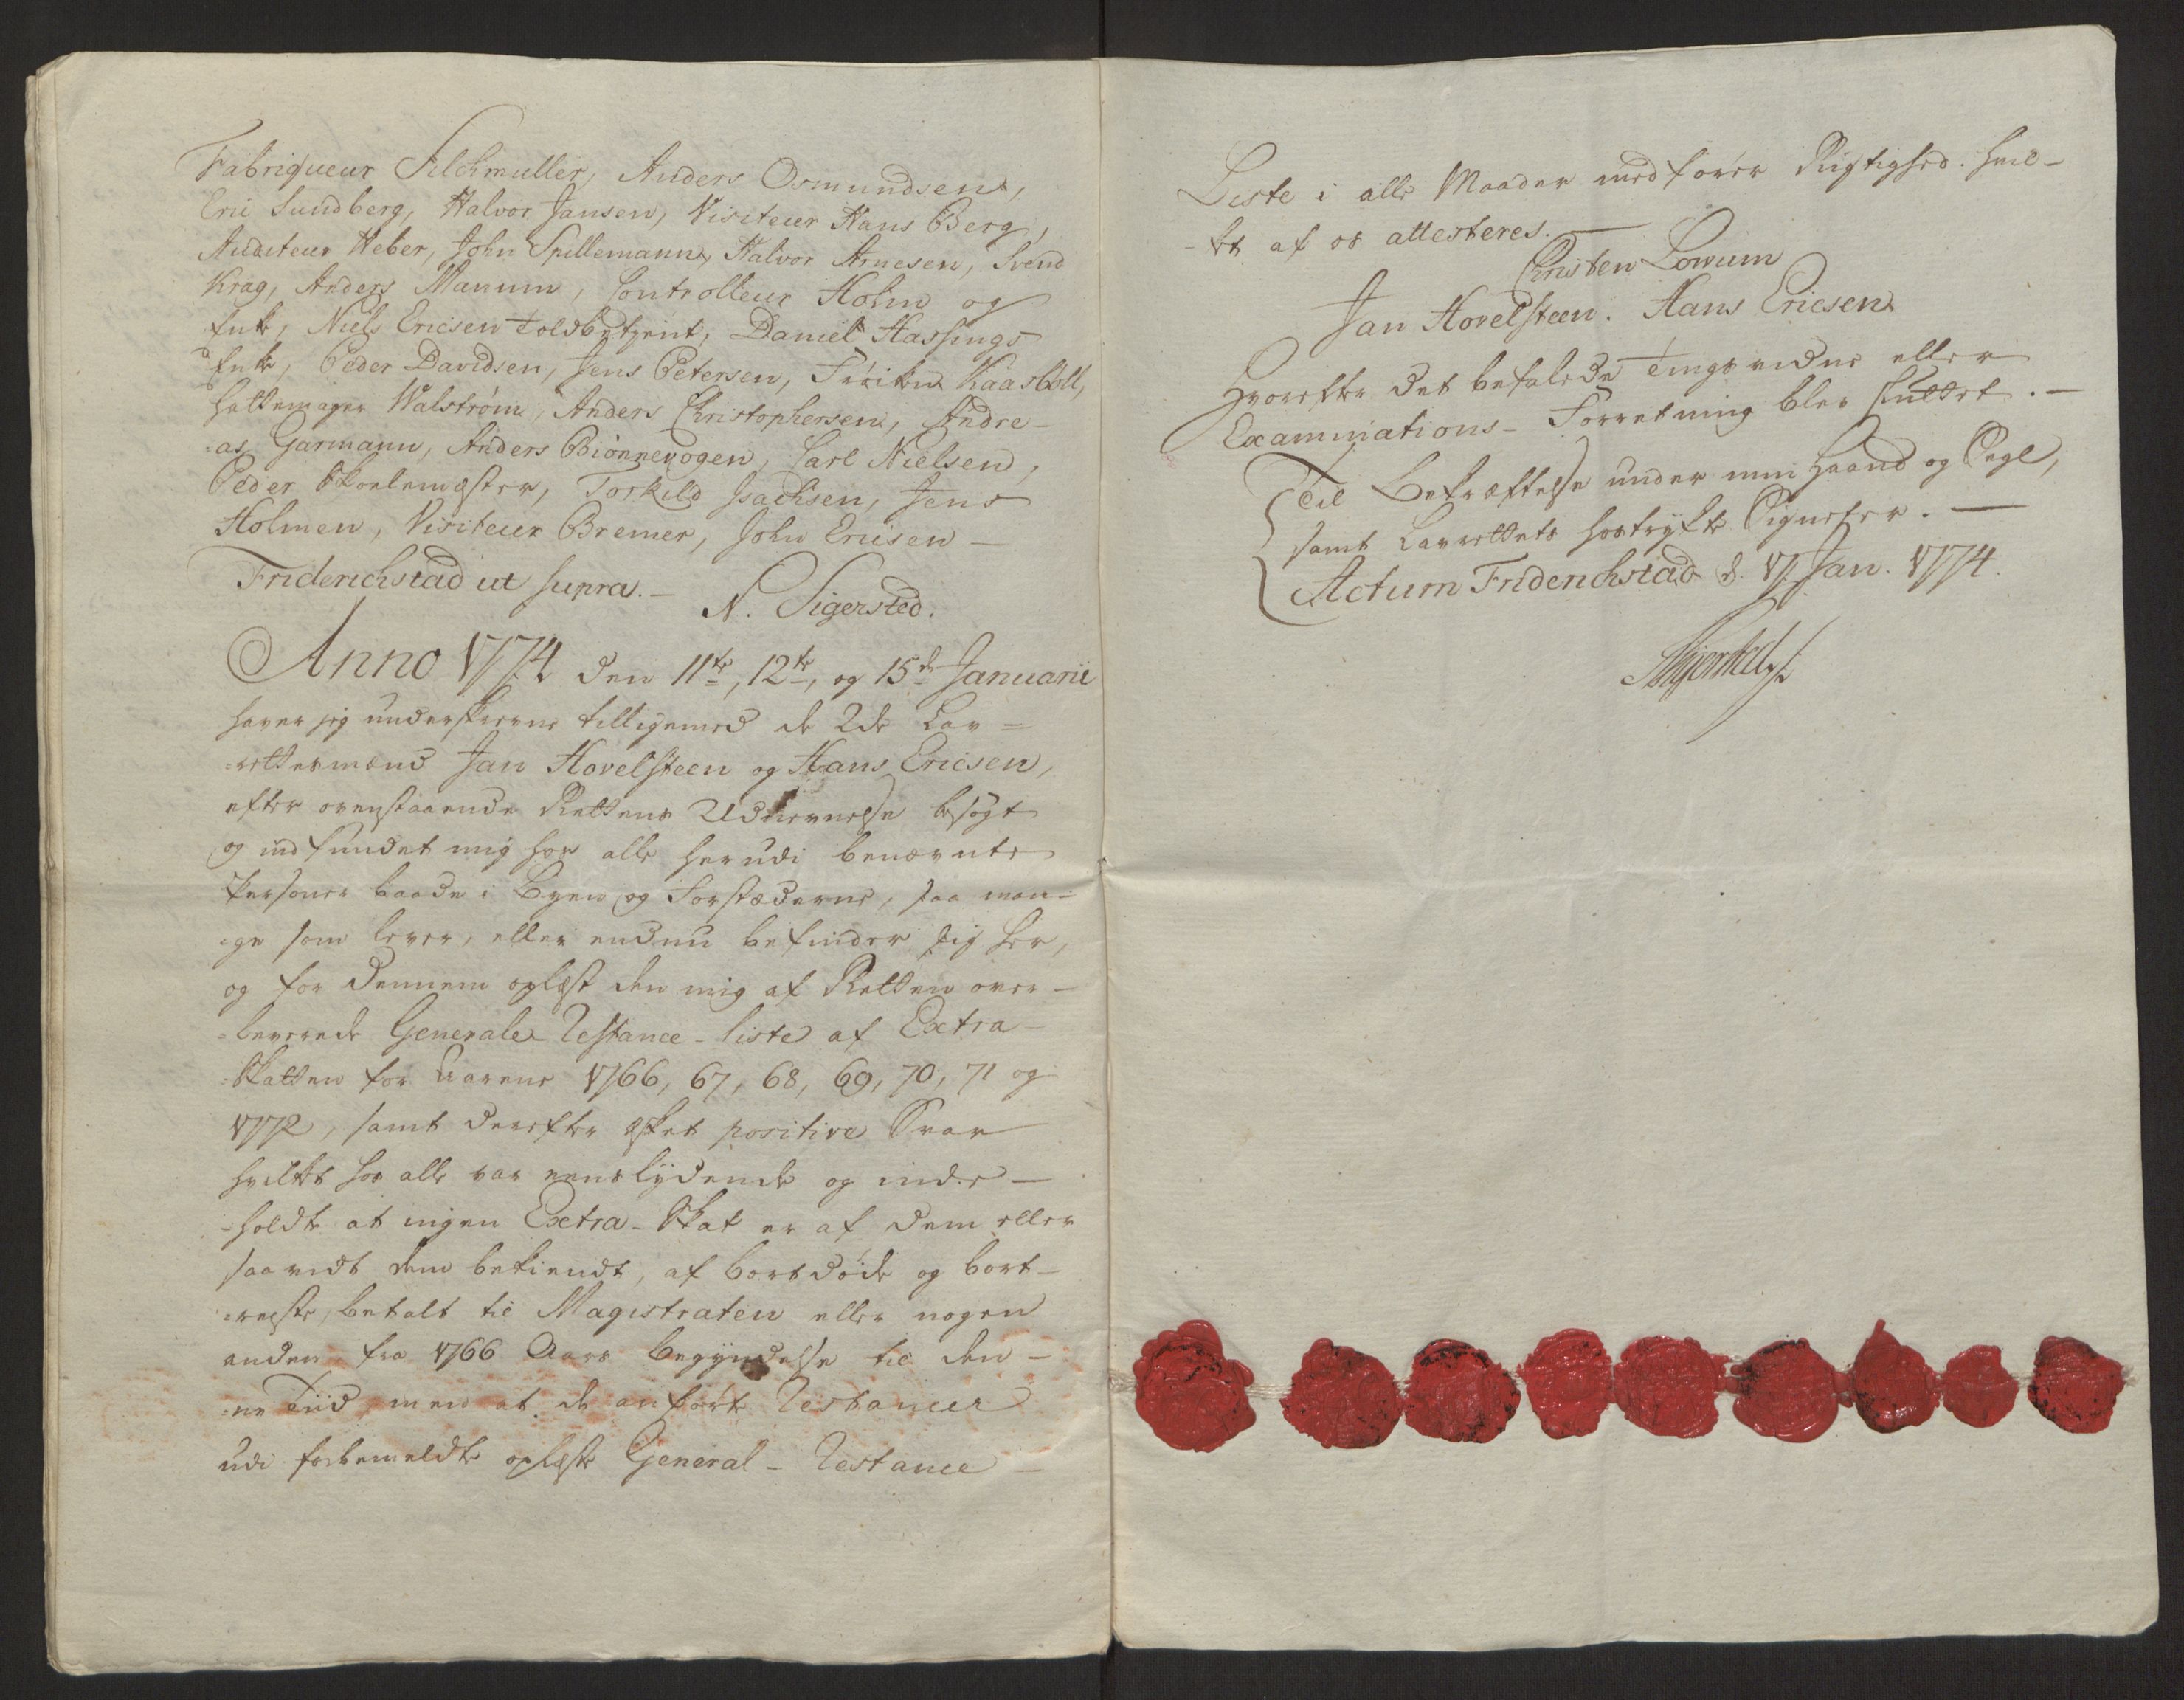 Fabriqueur Silchmuller, Anders Osmundsen,
Eric Sundberg, Halvor Jansen, Visiteur Hans Berg,
Auditeur Heber, John Spillemann, Halvor Arnesen, Svend
Krag, Anders Manum, Controlleur Holm og
Enke, Niels Ericsen Toldbetient, Daniel Hassings
Enke, Peder Davidsen, Jens Petersen, Frøiken Kaasböll,
Hattemager Walstrøm, Anders Christophersen, Andre-
=as Garmann, Anders Biönnevogen, Carl Nielsen,
Peder Skoelemester, Torkild Isachsen, Jens
Holmen, Visiteur Bremer, John Ericsen -
Friderichstad ut supra. - N. Sigersted.
Anno 1774 den 11te, 12te, og 15de Januarii
haver jeg underskrevne tilligemed de 2de Lav=
=rettesmænd Jan Hovelsteen og Hans Ericsen,
efter ovenstaaende Rettens Udnevnelse besøgt
og indfundet mig hos alle herudi benævnte
Personer baade i Byen og Forstæderne, saa man=
=ge som lever, eller endnu befinder sig her,
og for dennem oplæst den mig af Retten over-
=leverede Generale Restance-liste af Extra-
=Skatten for Aarene 1766, 67, 68, 69, 70, 71 og
1772, samt derefter æsket positive Svar
hvilket hos alle var eenslydende og inde-
=holdt at ingen Extra-Skat er af dem eller
saavidt dem bekiendt, af bortdöde og bort-
=reiste, betalt til Magistraten eller nogen
anden fra 1766 Aars Begyndelse til den-
=ne Tiid, men at de anförte Restancer
udi forbemeldte oplæste General-Restance-
Liste i alle Maader medförer Rigtighed. Hvil-
-ket af os attesteres. -
Christen Lowum
Jan Hovelsteen. Hans Ericsen
Hvorefter det befalede Tingsvidne eller
Examinations-Forretning blev sluttet. -
Til Bekræftelse under min Haand og Segl,
samt Lavrettets hostrykte Signeter. -
Actum Friderichstad d. 17 Jan. 1774.